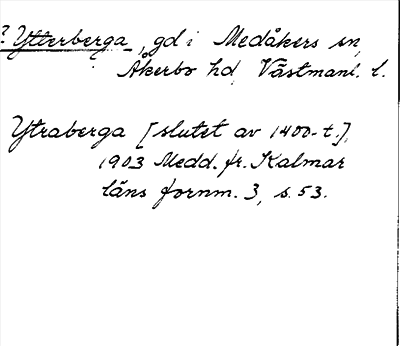 ? Ytterberga, gd i Medåkers sn,
Åkerbo hd, Västmanl. l.
Ytraberga [slutet av 1400-t.],
1903 Medd. fr. Kalmar
läns fornm. 3, s. 53.